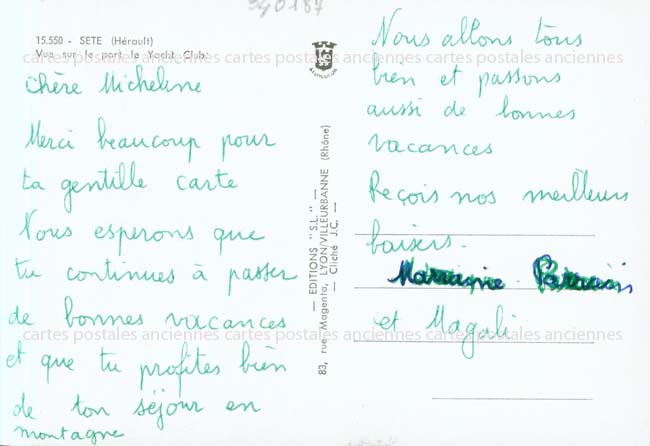 340187
15.550 - SETE (Hérault)
Vue sur le port le Yacht Club
cartes postales anciennes cartes postales anciennes cartes postales anciennes
chère Micheline
Merci beaucoup pour
ta gentille carte
Nous esperons que
tu continues à passer
de bonnes vacances
et que tu profites bien
de ton séjour en
montagne
83, rue Magenta, LYON-VILLEURBANNE (Rhône)
— EDITIONS "S.L." —
— Cliché J.C. —
Nous allons tous
bien et passons
aussi de bonnes
vacances
Reçois nos meilleurs
baisers.
et Magali
cartes postales anciennes cartes postales anciennes cartes postales anciennes